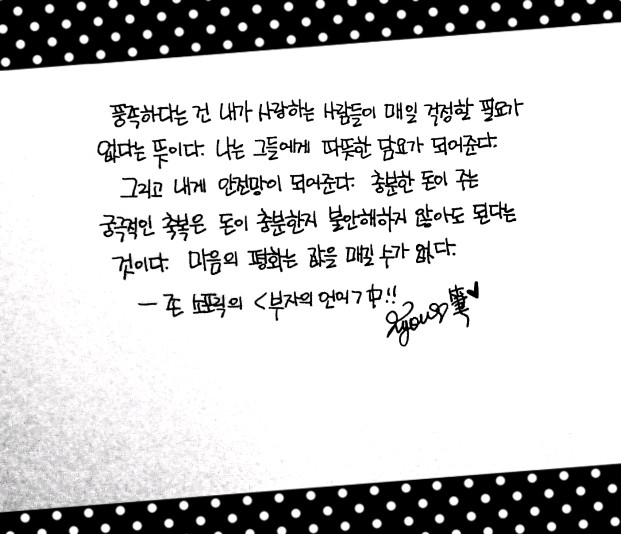 풍족하다는 건 내가 사랑하는 사람들이 매일 걱정할 필요가
없다는 뜻이다. 나는 그들에게 따뜻한 담요가 되어준다.
그리고 내게 안전망이 되어준다. 충분한 돈이 주는
궁극적인 축복은 돈이 충분한지 불안해하지 않아도 된다는
것이다. 마음의 평화는 값을 매길 수가 없다.
- 존 소포릭의 <부자의 언어> 中!!
筆♥